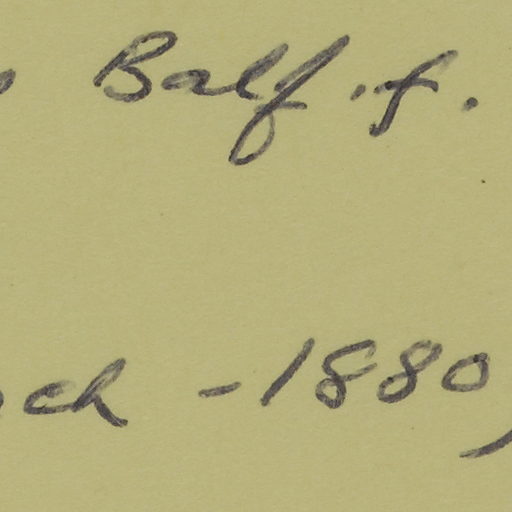 Balf.f.
ch - 1880